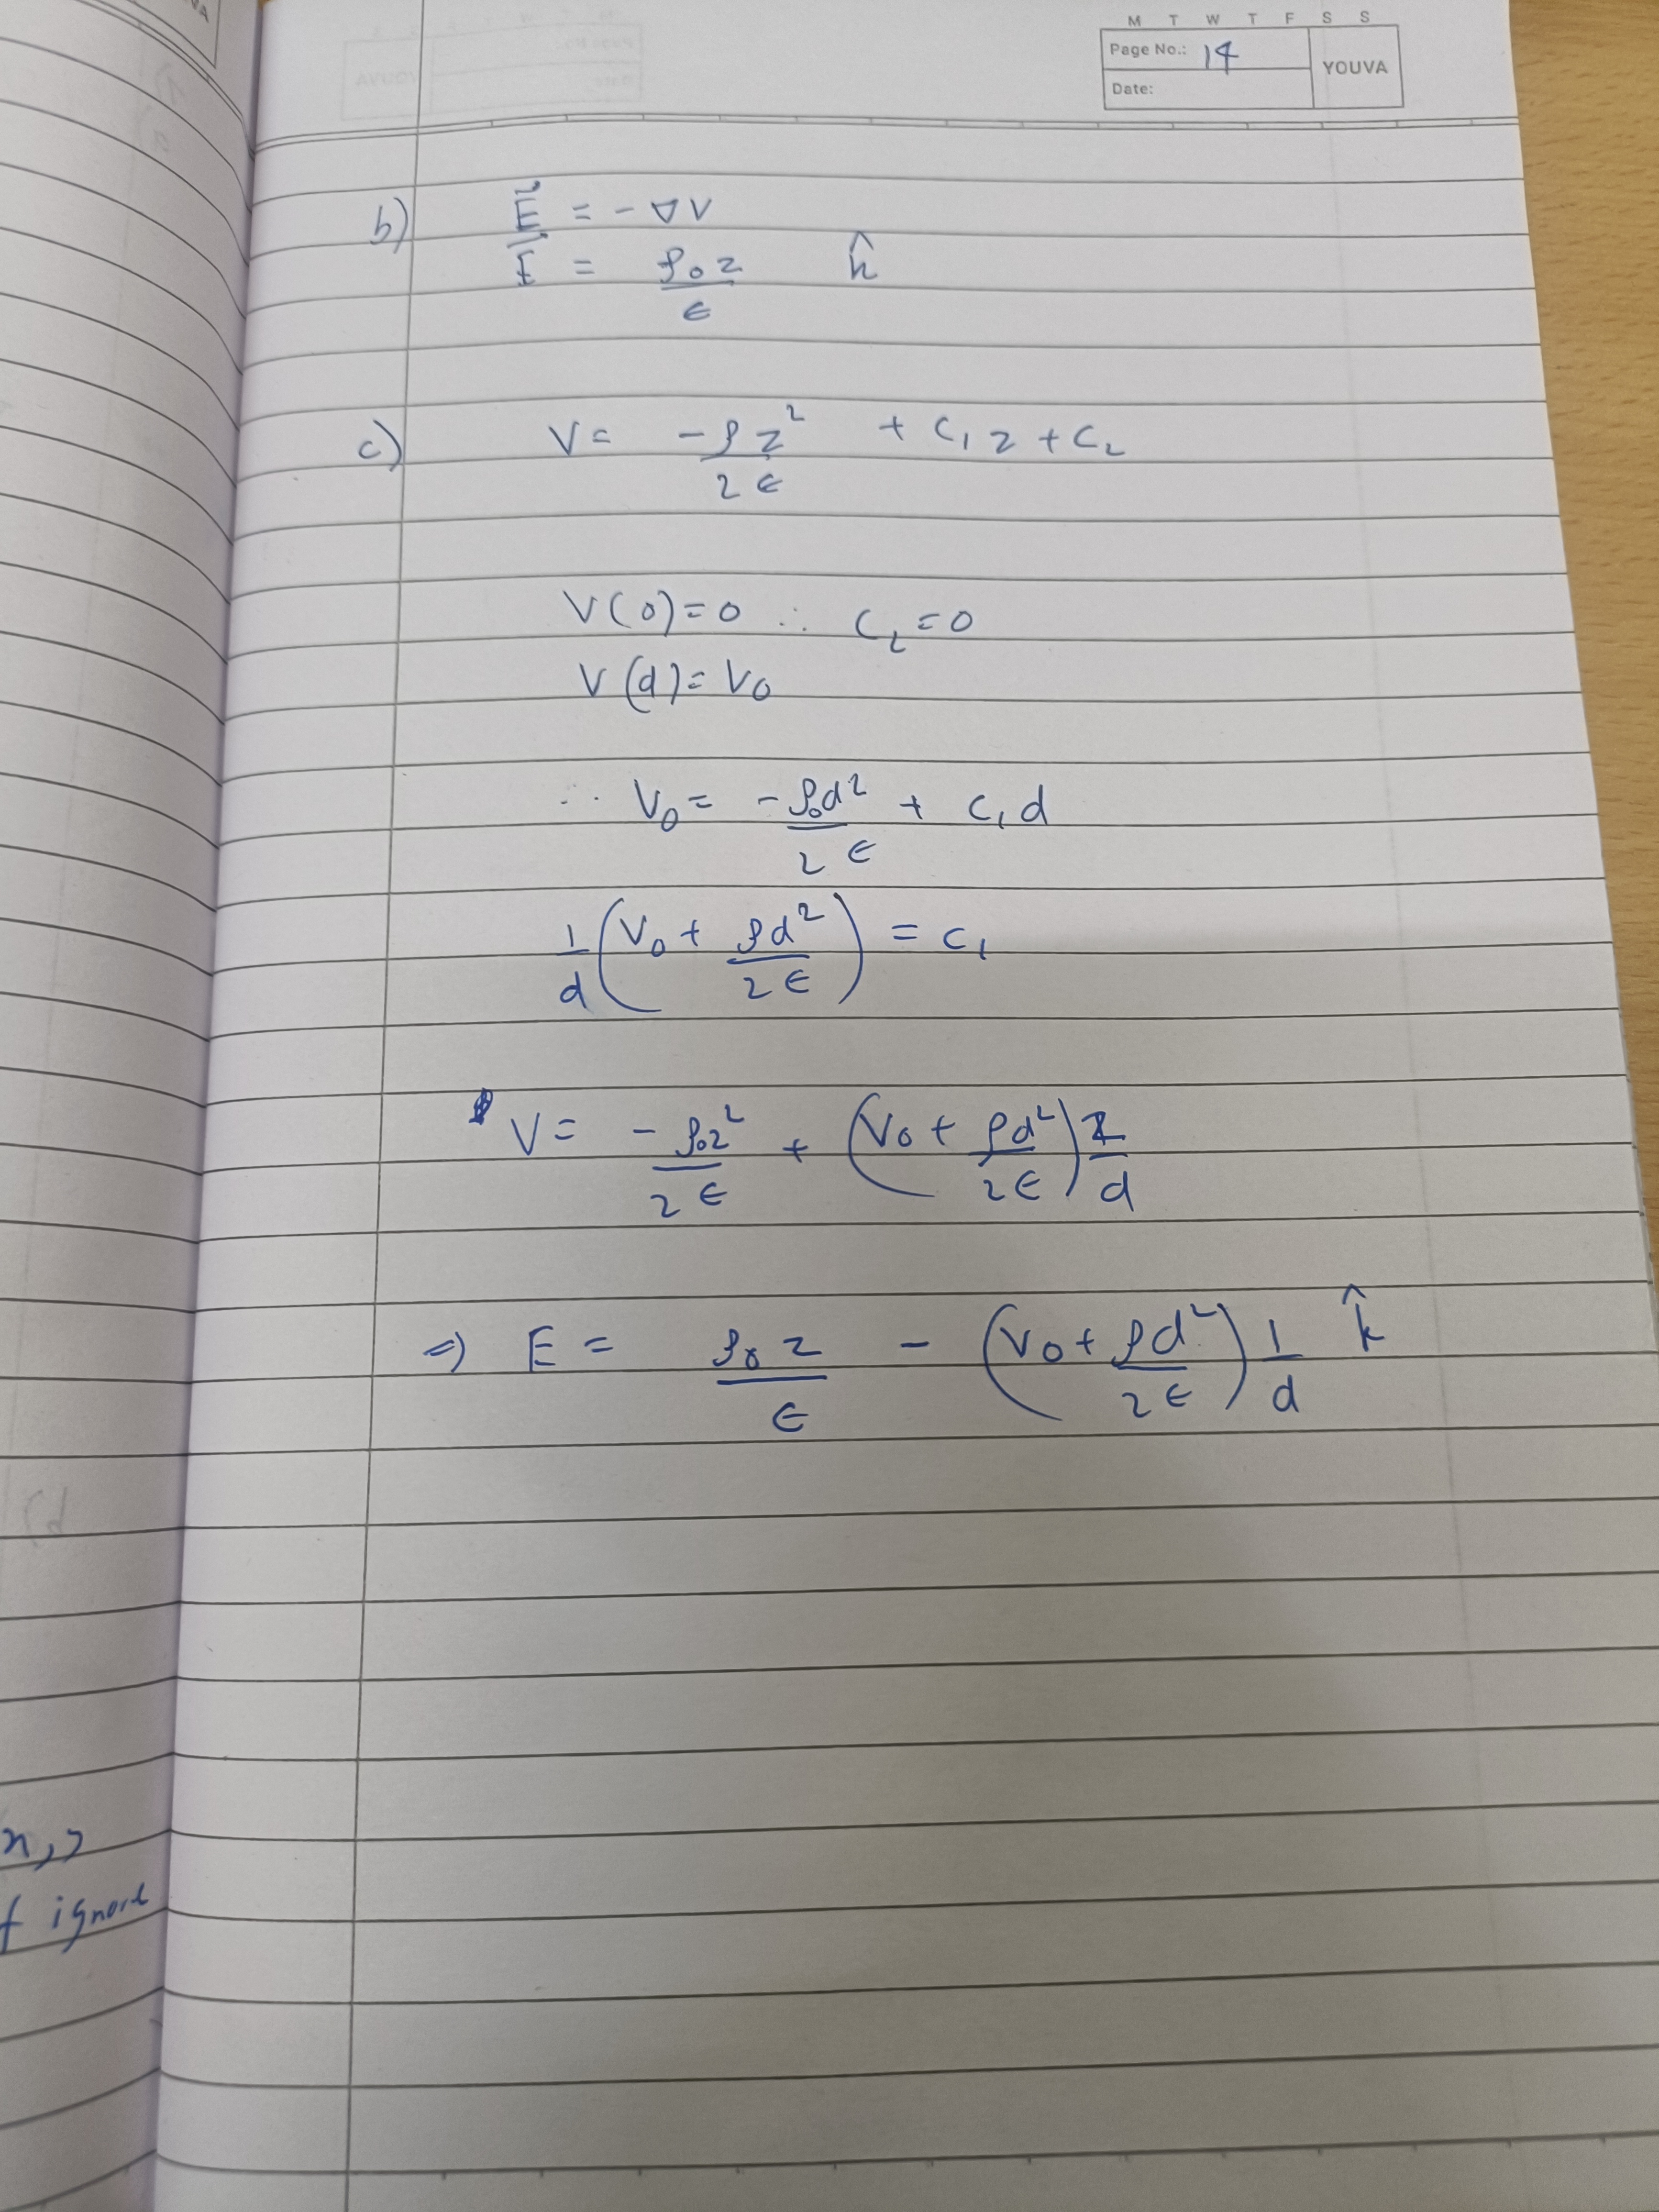 M T W T F S S
Page No.: 14
YOUVA
Date:
b) E⃗ = - ∇V
E⃗ = ρ₀z/ϵ k̂
c) V = -ρz²/2ϵ + C₁z + C₂
V(0)=0 ∴ C₂=0
V(d)=V₀
∴ V₀ = -ρ₀d²/2ϵ + C₁d
1/d (V₀ + ρd²/2ϵ) = C₁
V = -ρ₀z²/2ϵ + (V₀ + ρd²/2ϵ) z/d
⇒ E = ρ₀z/ϵ - (V₀ + ρd²/2ϵ) 1/d k̂
ignore